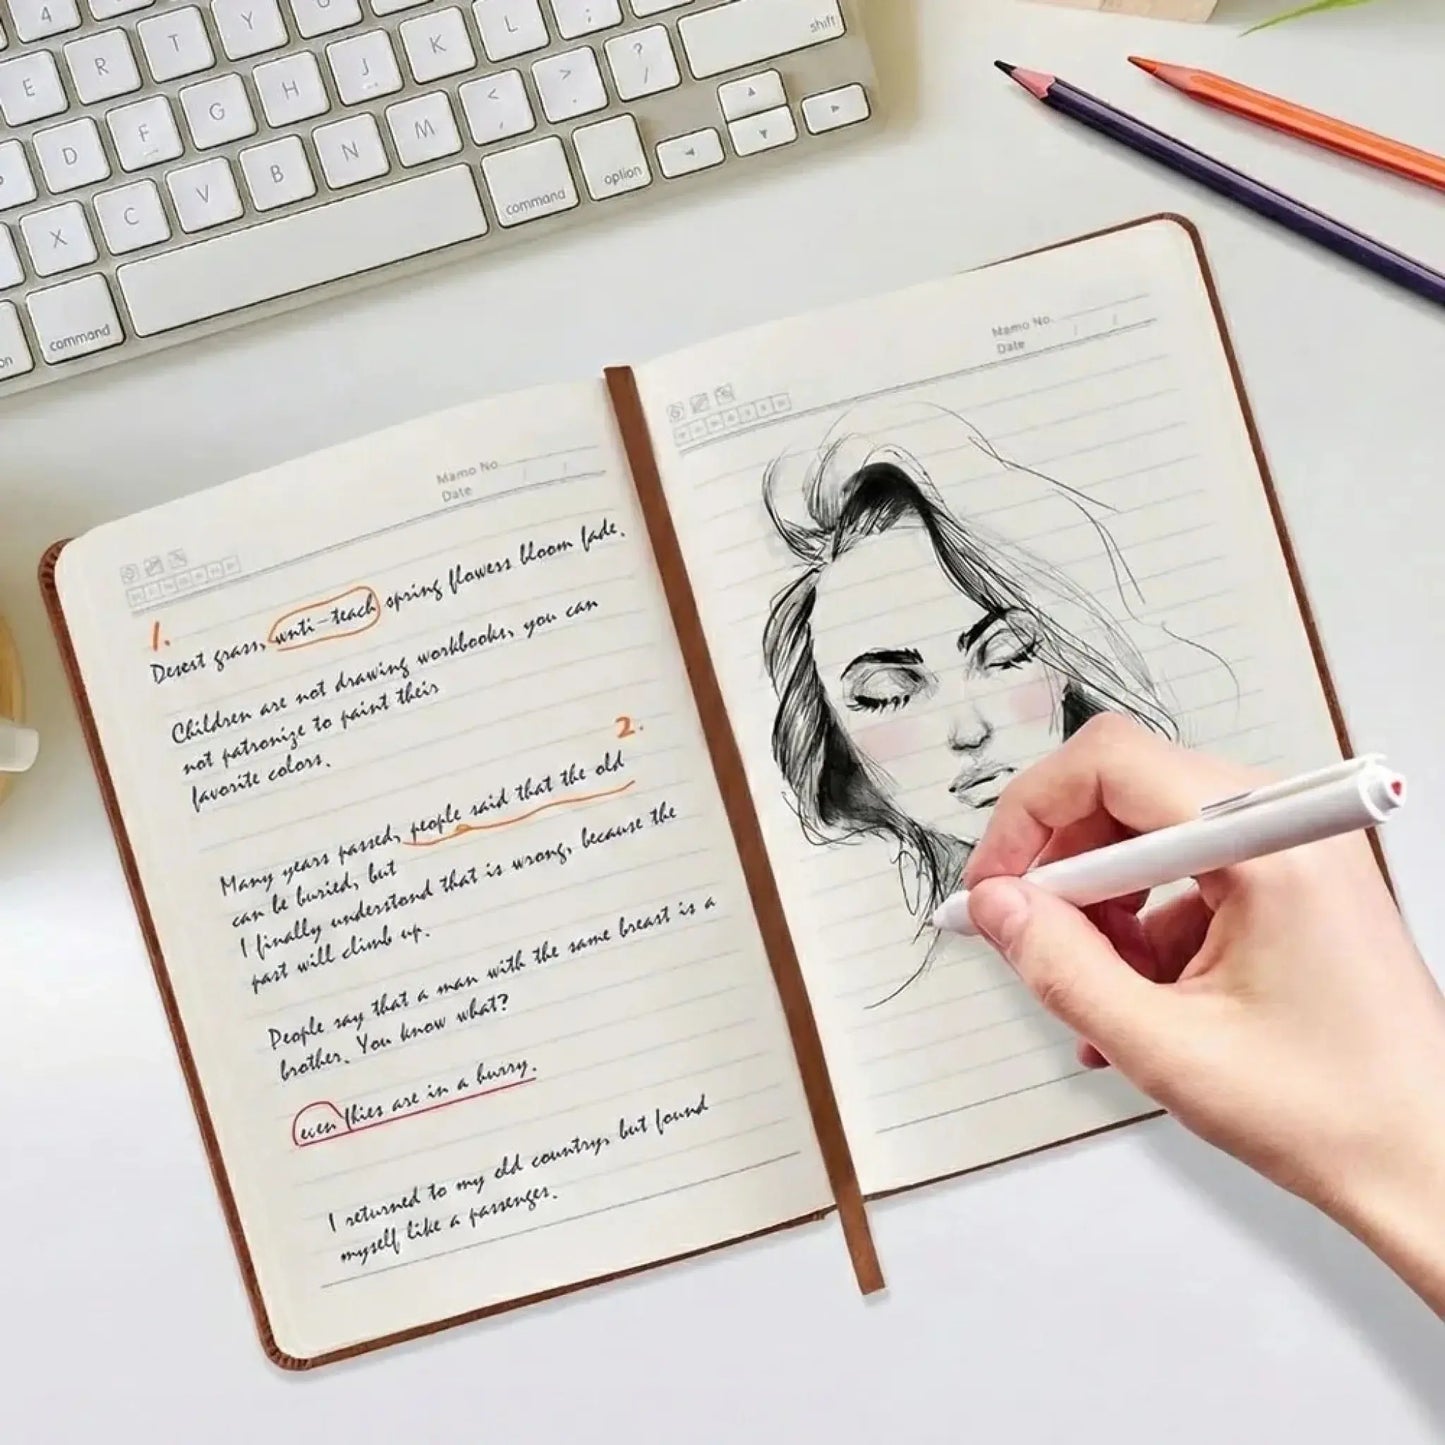 4
Y
L
;
shift
E
R
T
K
?
/
J
>
.
H
<
,
G
M
F
N
D
B
option
V
command
C
X
command
on
Mamo No.
Date / /
Mamo No.
Date / /
1.
Desert grass, wnti-teach spring flowers bloom fade.
Children are not drawing workbooks, you can
not patronize to paint their
favorite colors.
2.
Many years passed, people said that the old
can be buried, but
I finally understood that is wrong, because the
past will climb up.
People say that a man with the same breast is a
brother. You know what?
even thies are in a hurry.
I returned to my old country, but found
myself like a passenger.